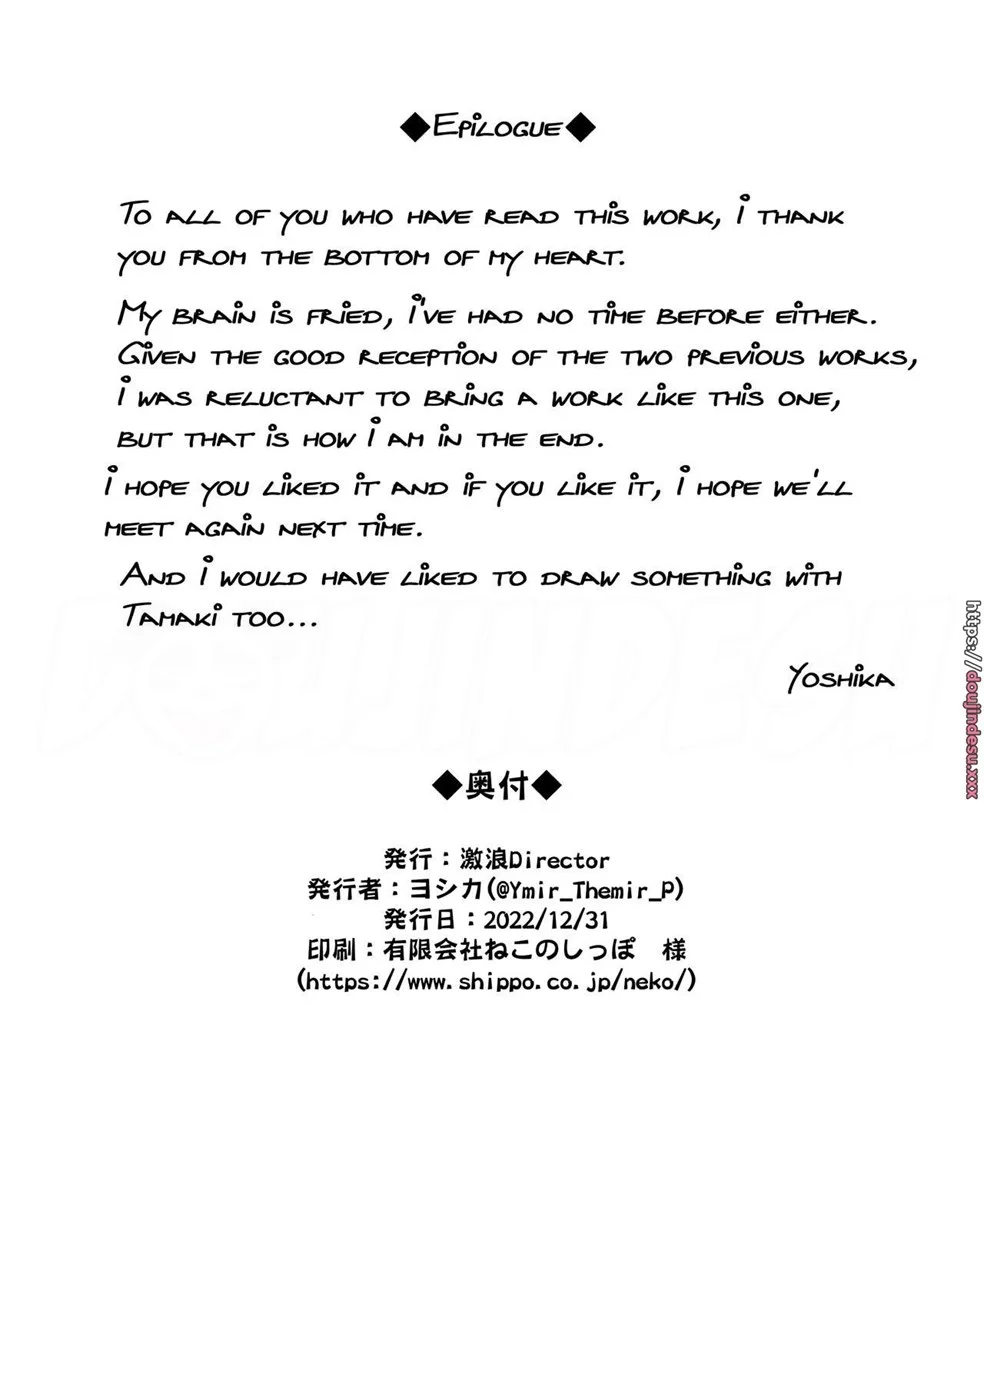 ◆Epilogue◆
To all of you who have read this work, i thank
you from the bottom of my heart.
My brain is fried, i've had no time before either.
Given the good reception of the two previous works,
i was reluctant to bring a work like this one,
but that is how i am in the end.
i hope you liked it and if you like it, i hope we'll
meet again next time.
And i would have liked to draw something with
Tamaki too...
Yoshika
https://doujindesu.xxx
DOUJINDESU
◆奥付◆
発行：激浪Director
発行者：ヨシカ(@Ymir_Themir_P)
発行日：2022/12/31
印刷：有限会社ねこのしっぽ　様
(https://www.shippo.co.jp/neko/)